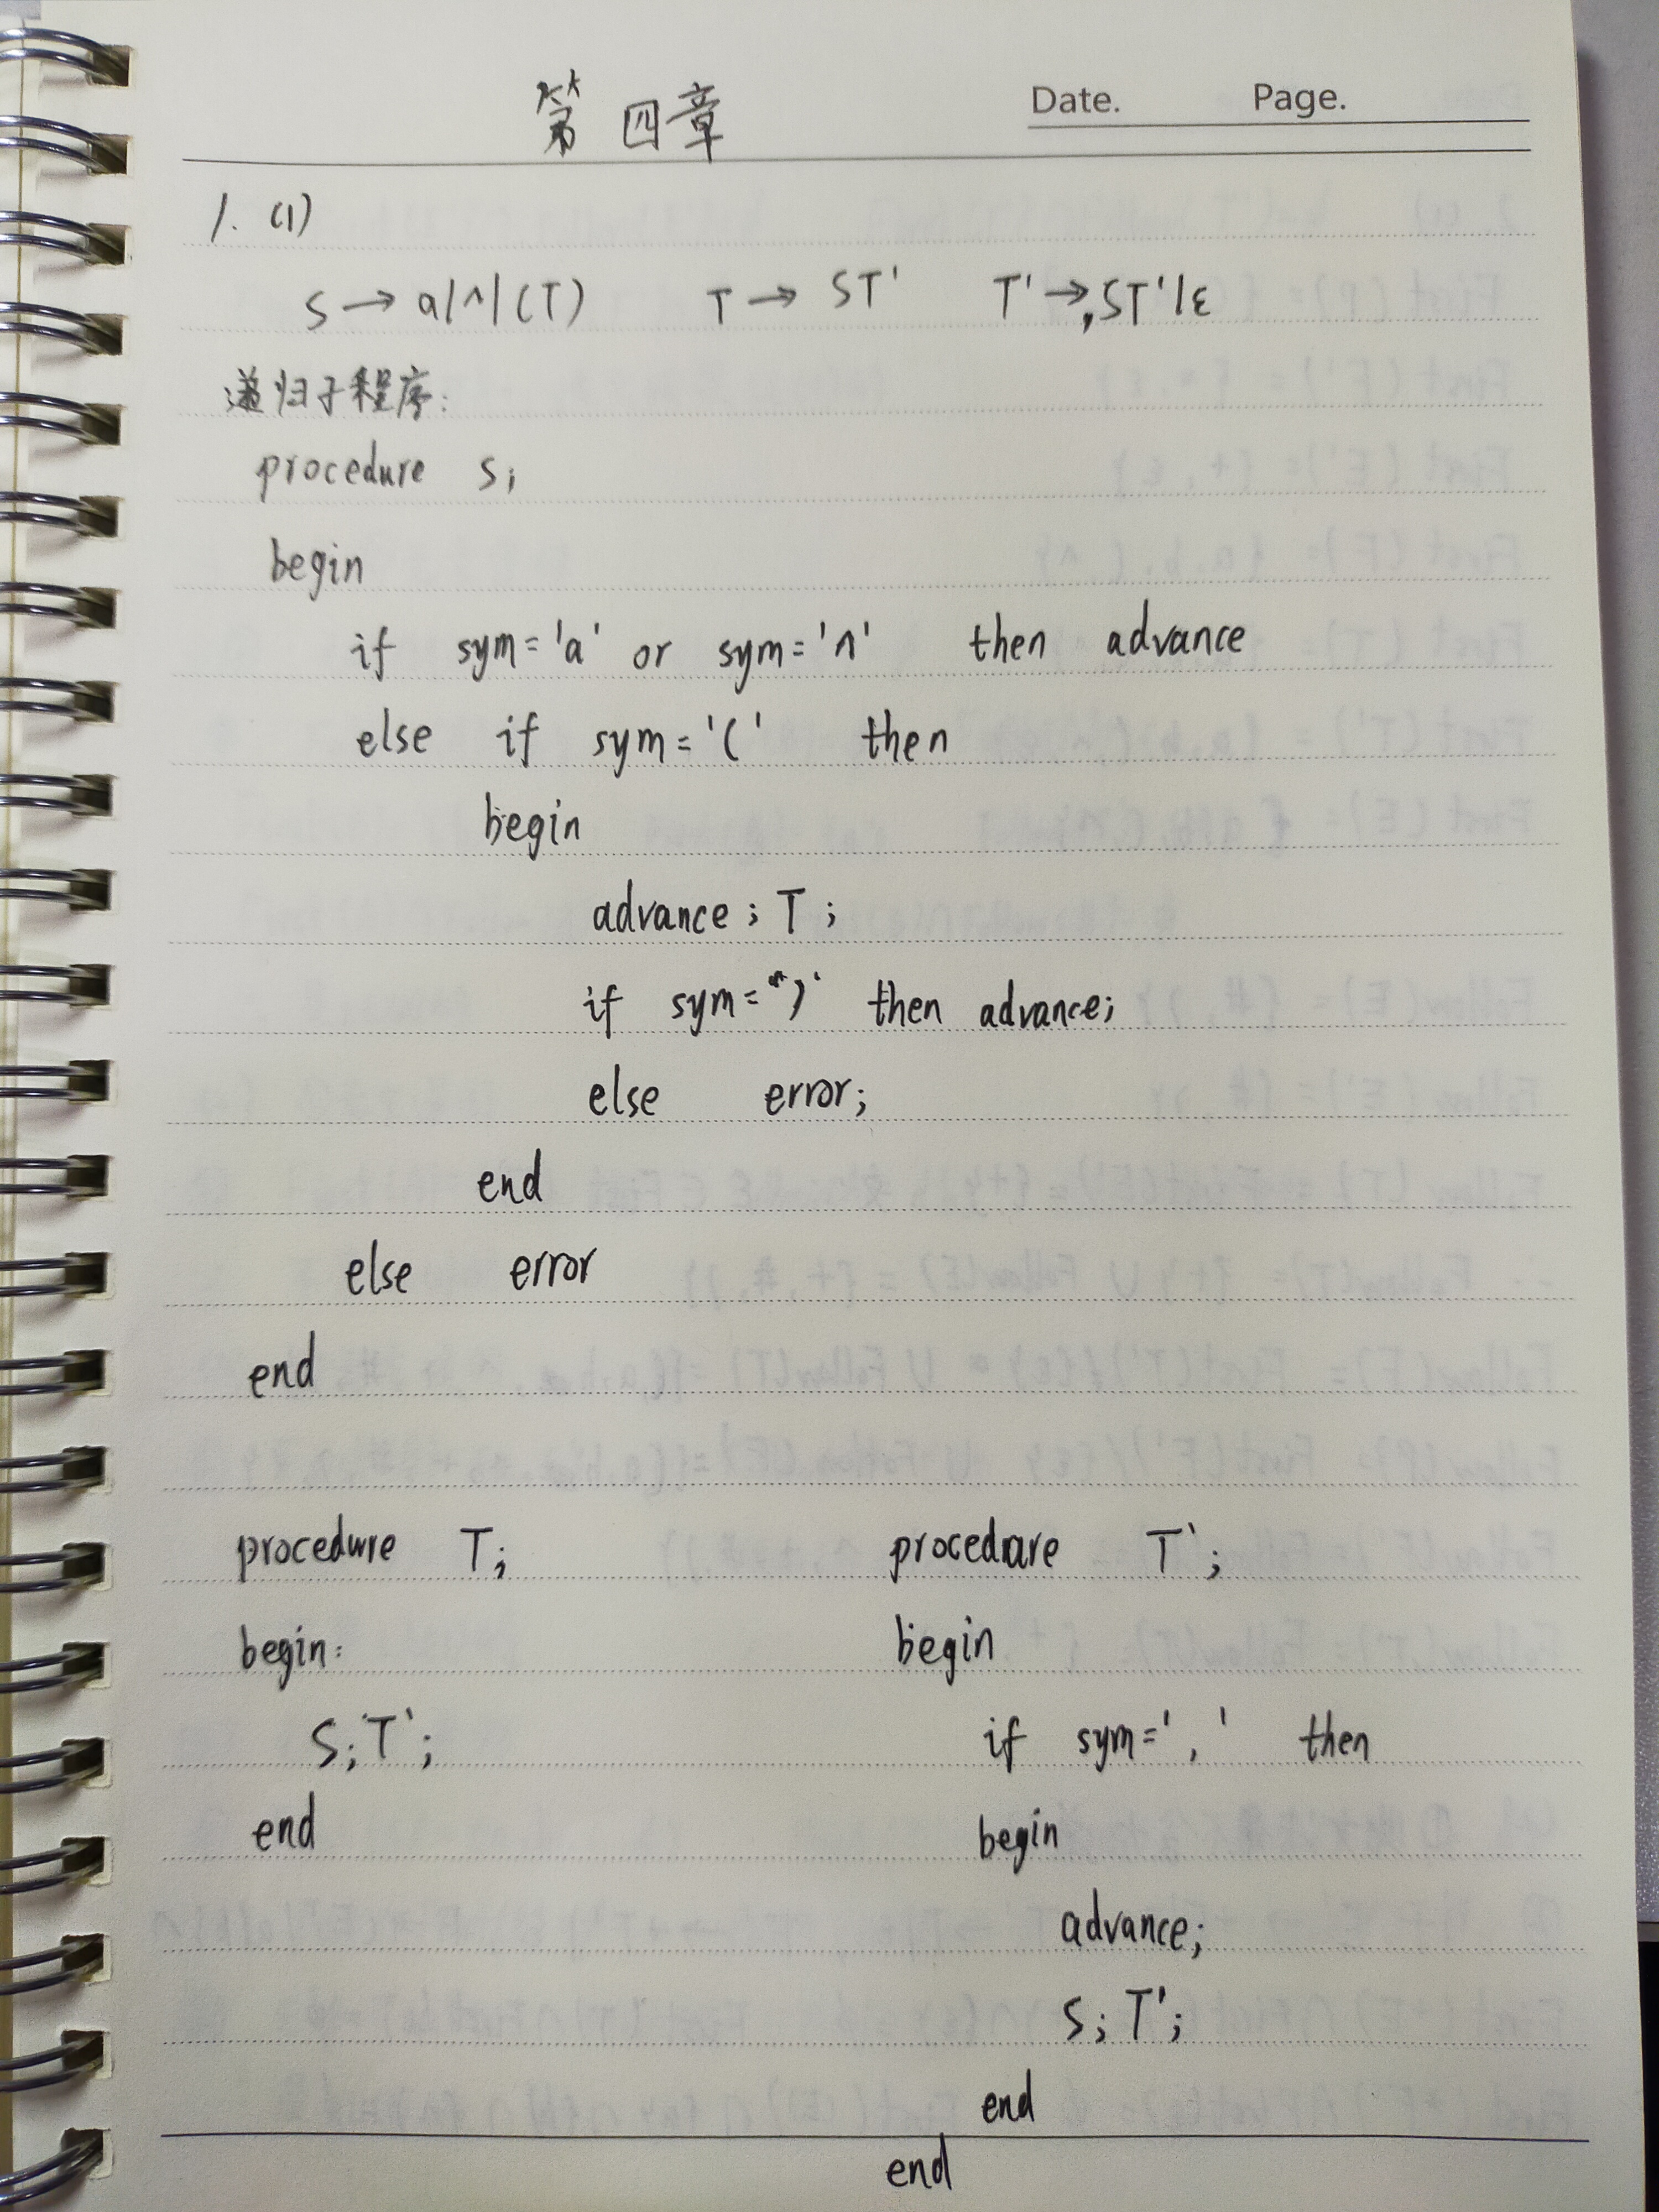 第四章
Date. Page.
1. (1)
S → a|^|(T) T → ST' T' → ,ST'|ε
递归子程序:
procedure S;
begin
if sym='a' or sym='^' then advance
else if sym='(' then
begin
advance; T;
if sym=')' then advance;
else error;
end
else error
end
procedure T;
begin:
S; T';
end
procedure T';
begin
if sym=',' then
begin
advance;
S; T';
end
end